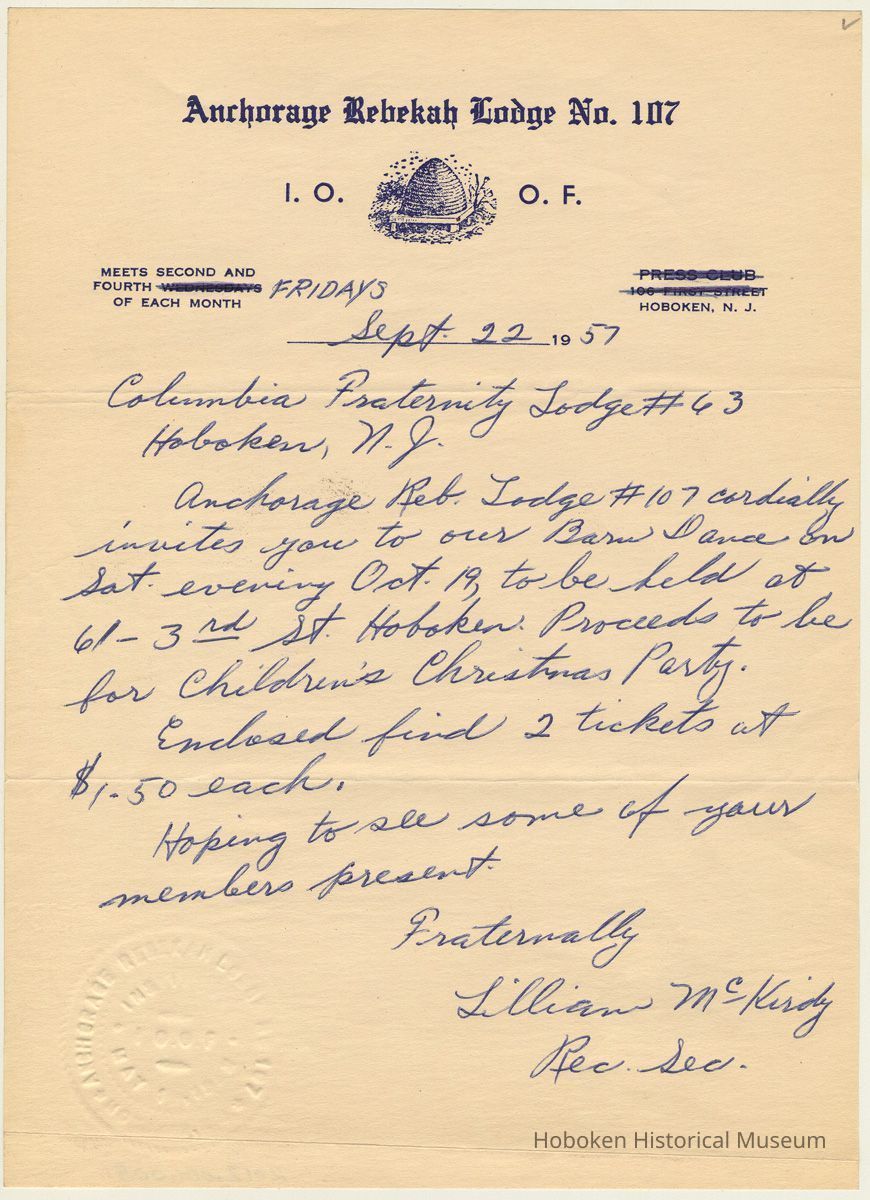 Anchorage Rebekah Lodge No. 107
I. O. O. F.
MEETS SECOND AND
FOURTH WEDNESDAYS FRIDAYS
OF EACH MONTH
PRESS CLUB
106 FIRST STREET
HOBOKEN, N. J.
Sept. 22 1957
Columbia Fraternity Lodge # 63
Hoboken, N. J.
Anchorage Reb. Lodge # 107 cordially
invites you to our Barn Dance on
Sat. evening Oct. 19, to be held at
61 - 3rd St. Hoboken. Proceeds to be
for Children's Christmas Party.
Enclosed find 2 tickets at
$1.50 each.
Hoping to see some of your
members present.
Fraternally
Lillian McKirdy
Rec. Sec.
Hoboken Historical Museum